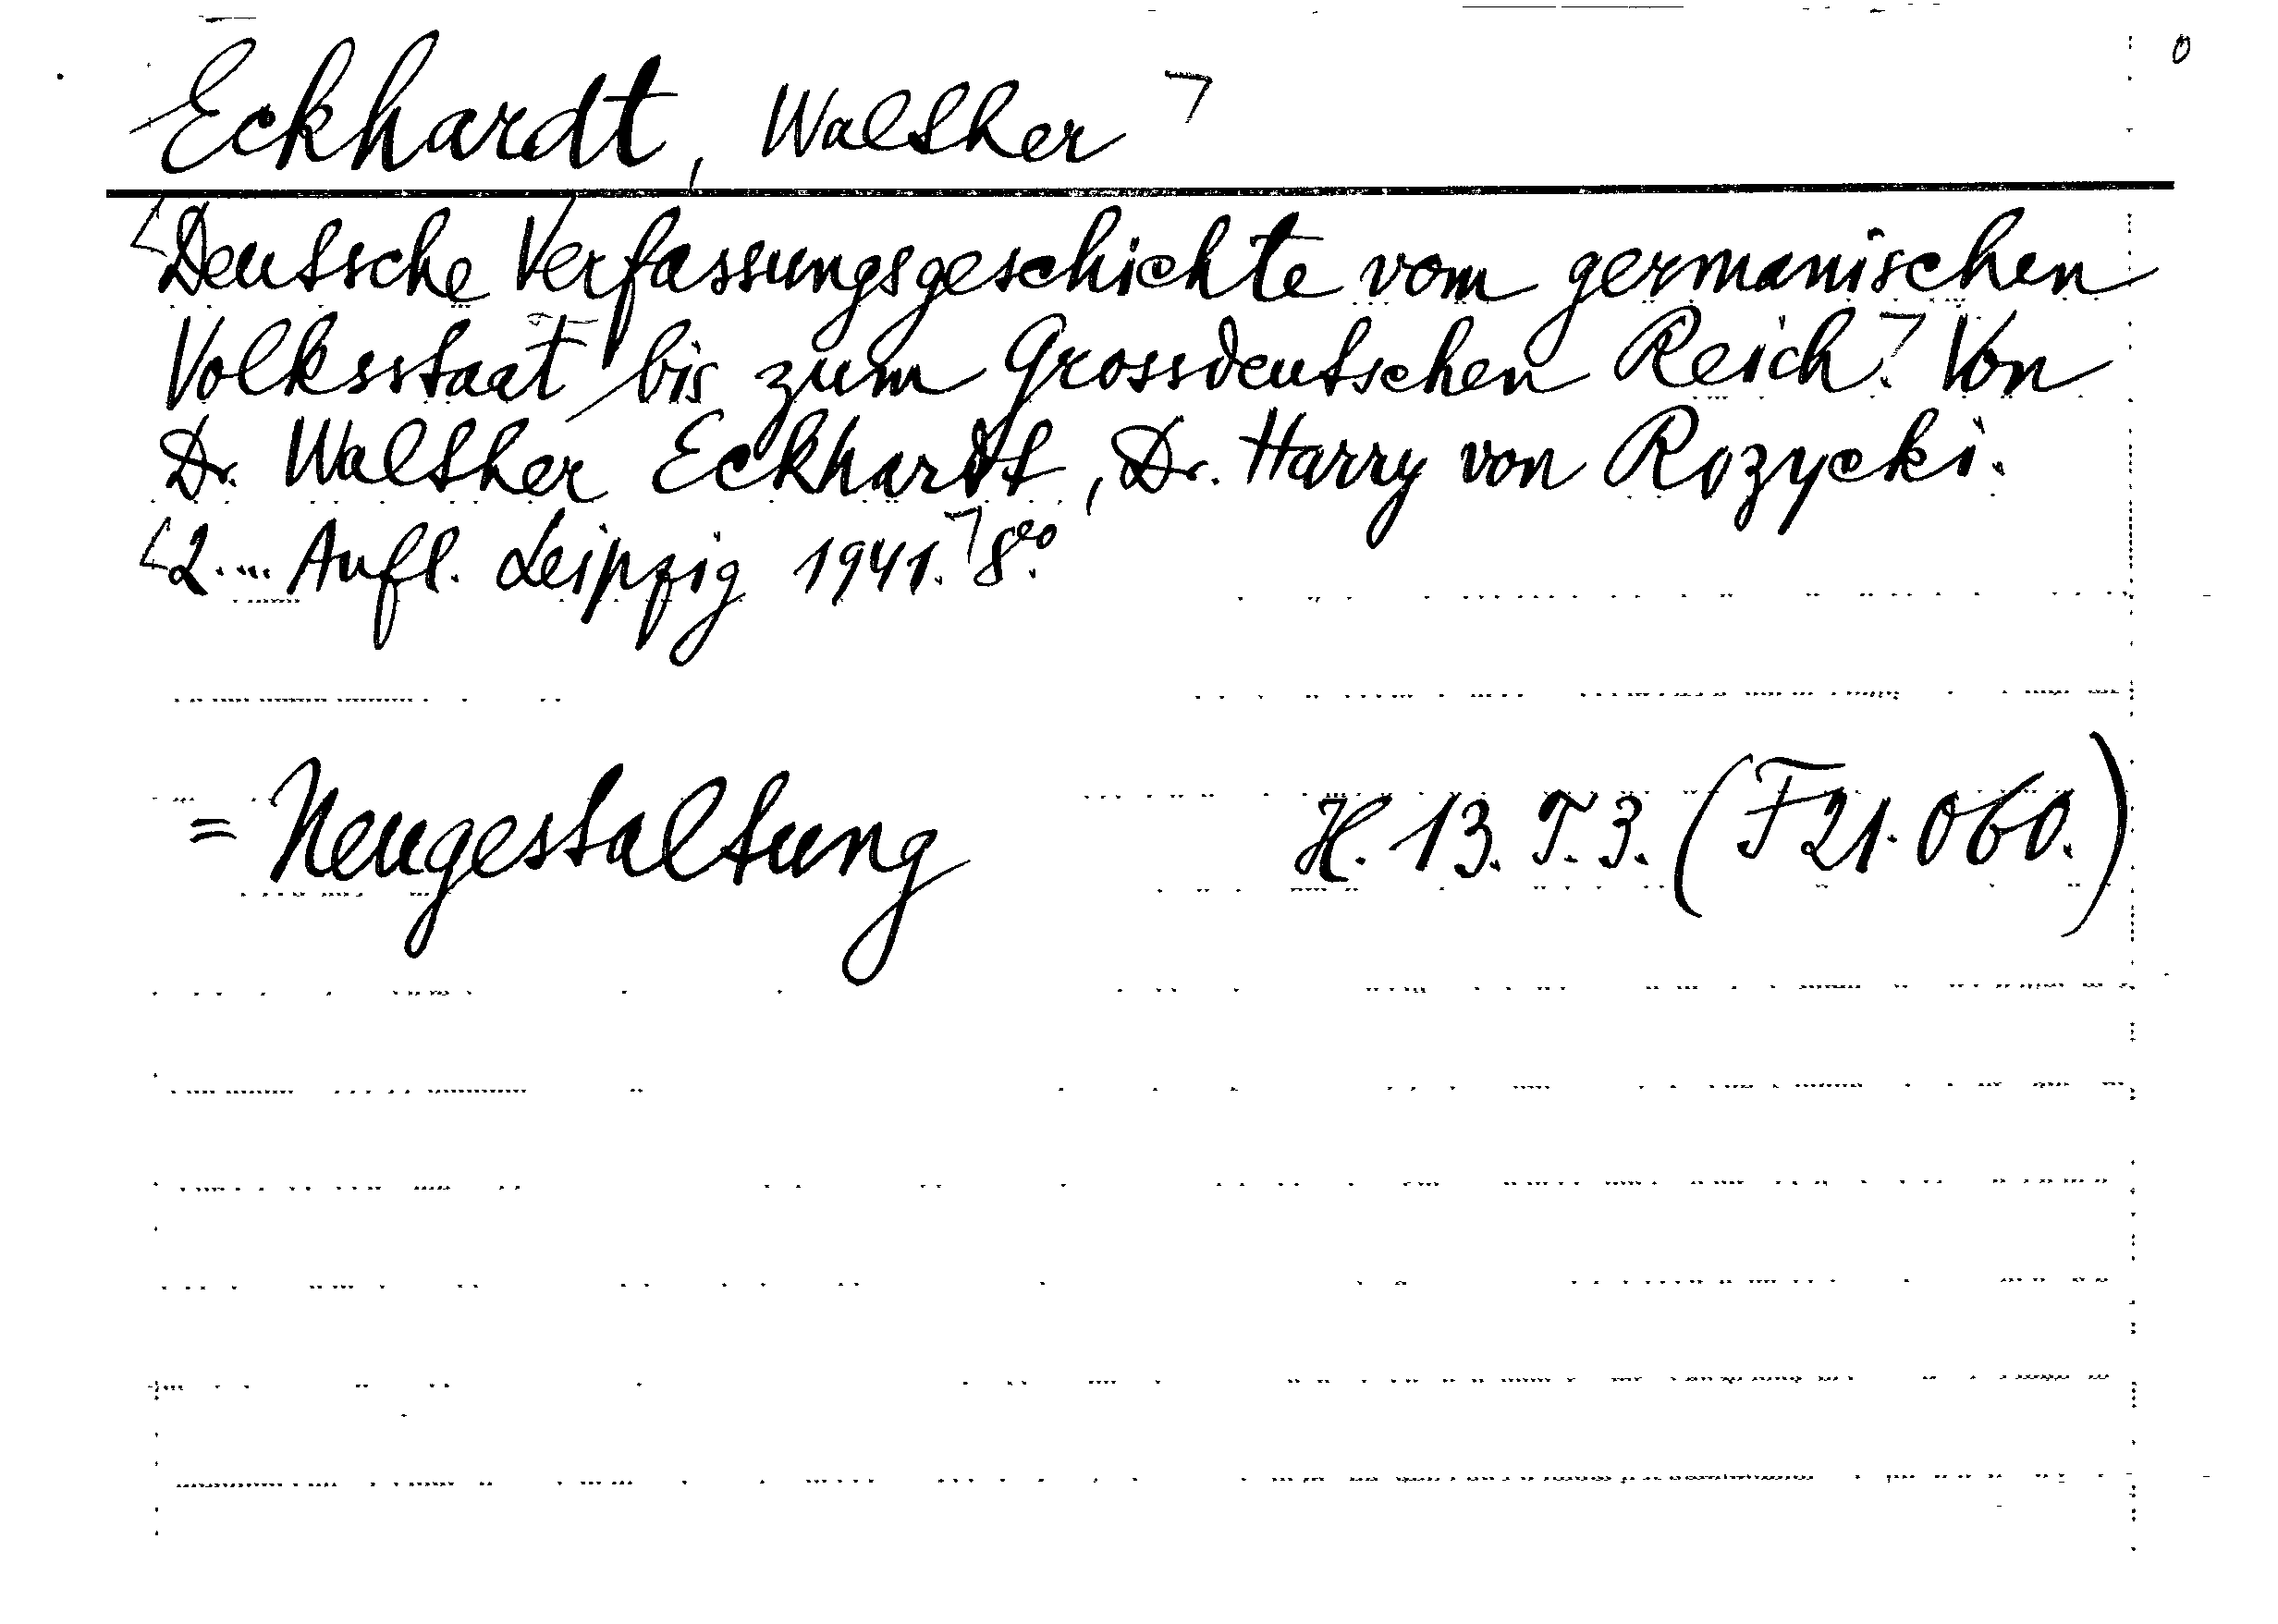 Eckhardt, Walther
Deutsche Verfassungsgeschichte vom germanischen
Volksstaat bis zum Grossdeutschen Reich. Von
Dr. Walther Eckhardt, Dr. Harry von Rozycki.
2.... Aufl. Leipzig 1941. 8°.
= Neugestaltung H. 13. T. 3. (F 21.060.)